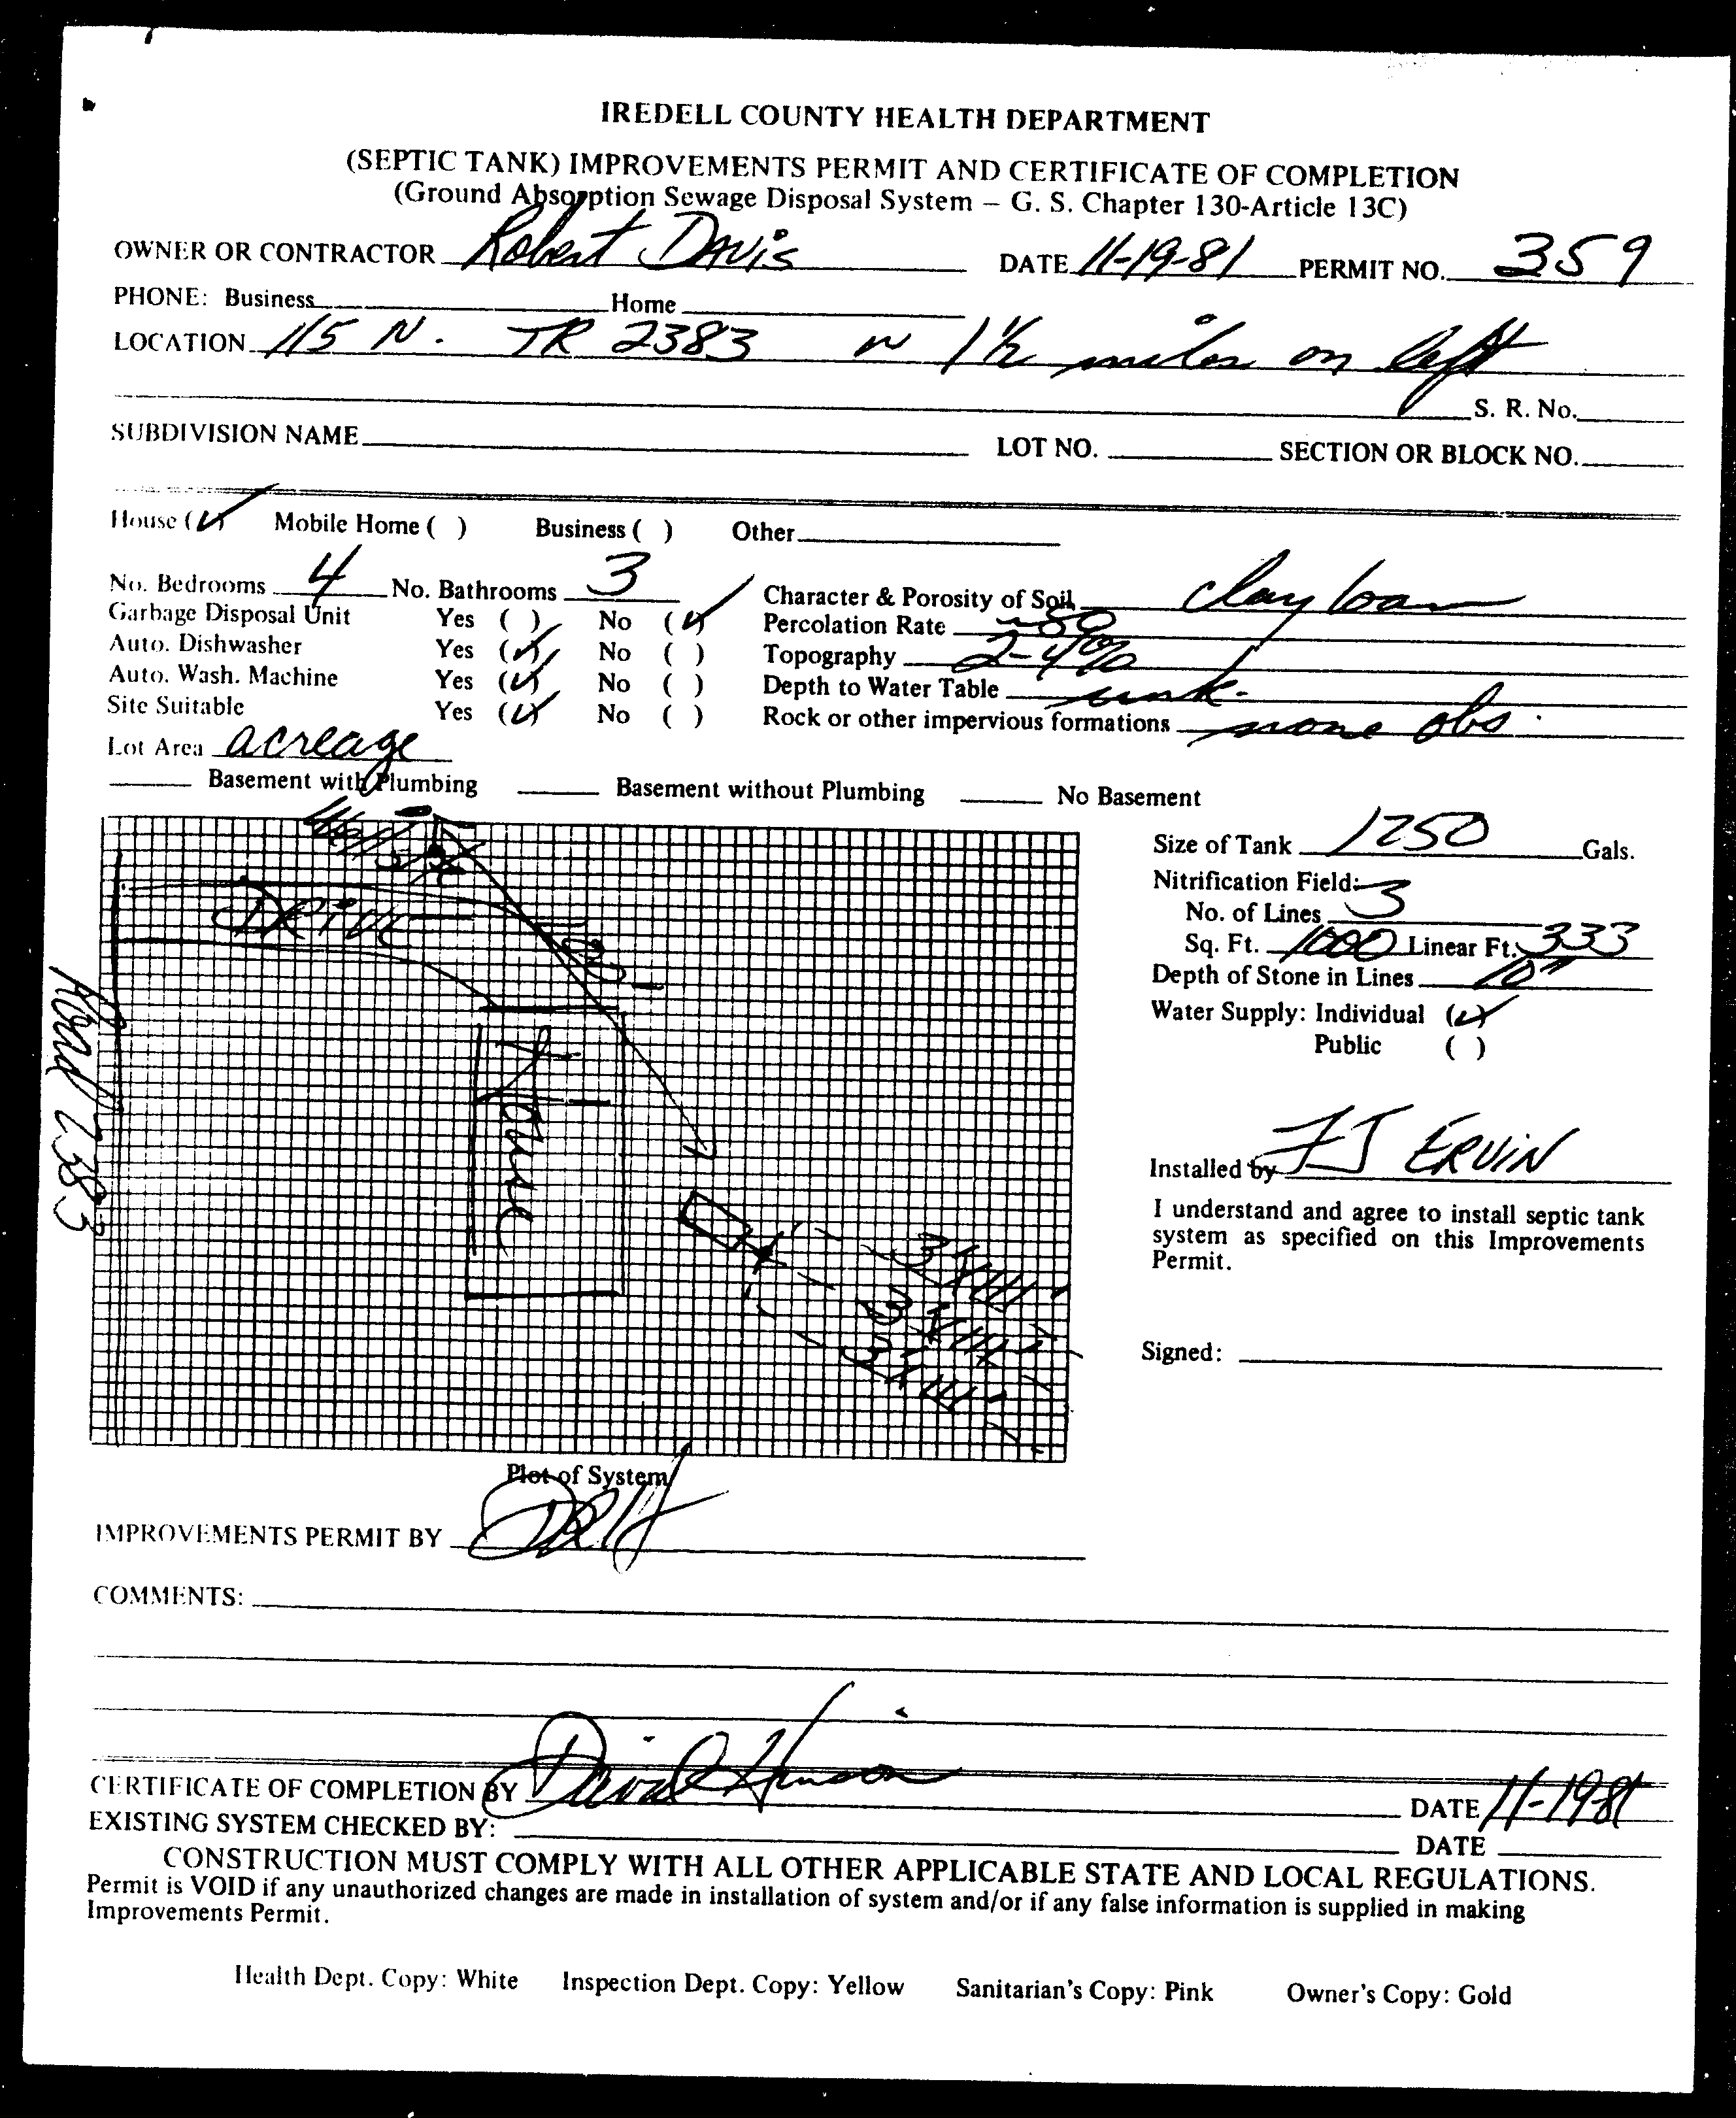 IREDELL COUNTY HEALTH DEPARTMENT
(SEPTIC TANK) IMPROVEMENTS PERMIT AND CERTIFICATE OF COMPLETION
(Ground Absorption Sewage Disposal System – G. S. Chapter 130-Article 13C)
OWNER OR CONTRACTOR Robert Davis DATE 11-19-81 PERMIT NO. 359
PHONE: Business Home
LOCATION 115 N. TR 2383 1 1/2 miles on left
S. R. No.
SUBDIVISION NAME LOT NO. SECTION OR BLOCK NO.
House (✓) Mobile Home ( ) Business ( ) Other
No. Bedrooms 4 No. Bathrooms 3 Character & Porosity of Soil clay loam
Garbage Disposal Unit Yes ( ) No (✓) Percolation Rate ~50
Auto. Dishwasher Yes (✓) No ( ) Topography 2-4%
Auto. Wash. Machine Yes (✓) No ( ) Depth to Water Table unk.
Site Suitable Yes (✓) No ( ) Rock or other impervious formations none obs.
Lot Area acreage
Basement with Plumbing Basement without Plumbing No Basement
Size of Tank 1250 Gals.
Nitrification Field:
No. of Lines 3
Sq. Ft. 1000 Linear Ft. 333
Depth of Stone in Lines 10"
Water Supply: Individual (✓)
Public ( )
Drive
100'
House
Road 2383
Installed by FJ ERVIN
I understand and agree to install septic tank
system as specified on this Improvements
Permit.
Signed:
Plot of System
IMPROVEMENTS PERMIT BY DRH
COMMENTS:
CERTIFICATE OF COMPLETION BY David DATE 11-19-81
EXISTING SYSTEM CHECKED BY: DATE
CONSTRUCTION MUST COMPLY WITH ALL OTHER APPLICABLE STATE AND LOCAL REGULATIONS.
Permit is VOID if any unauthorized changes are made in installation of system and/or if any false information is supplied in making
Improvements Permit.
Health Dept. Copy: White Inspection Dept. Copy: Yellow Sanitarian's Copy: Pink Owner's Copy: Gold